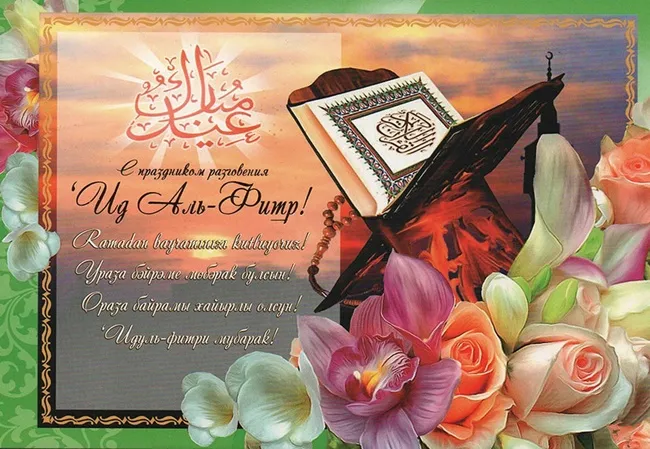 عيد مبارك
С праздником разговения
‘Ид Аль-Фитр!
Ramadan bayramınızı kutluyoruz!
Ураза бәйрәме мөбәрак булсын!
Ораза байрамы хайырлы олсун!
‘Идуль-фитри мубарак!
القرآن الكريم